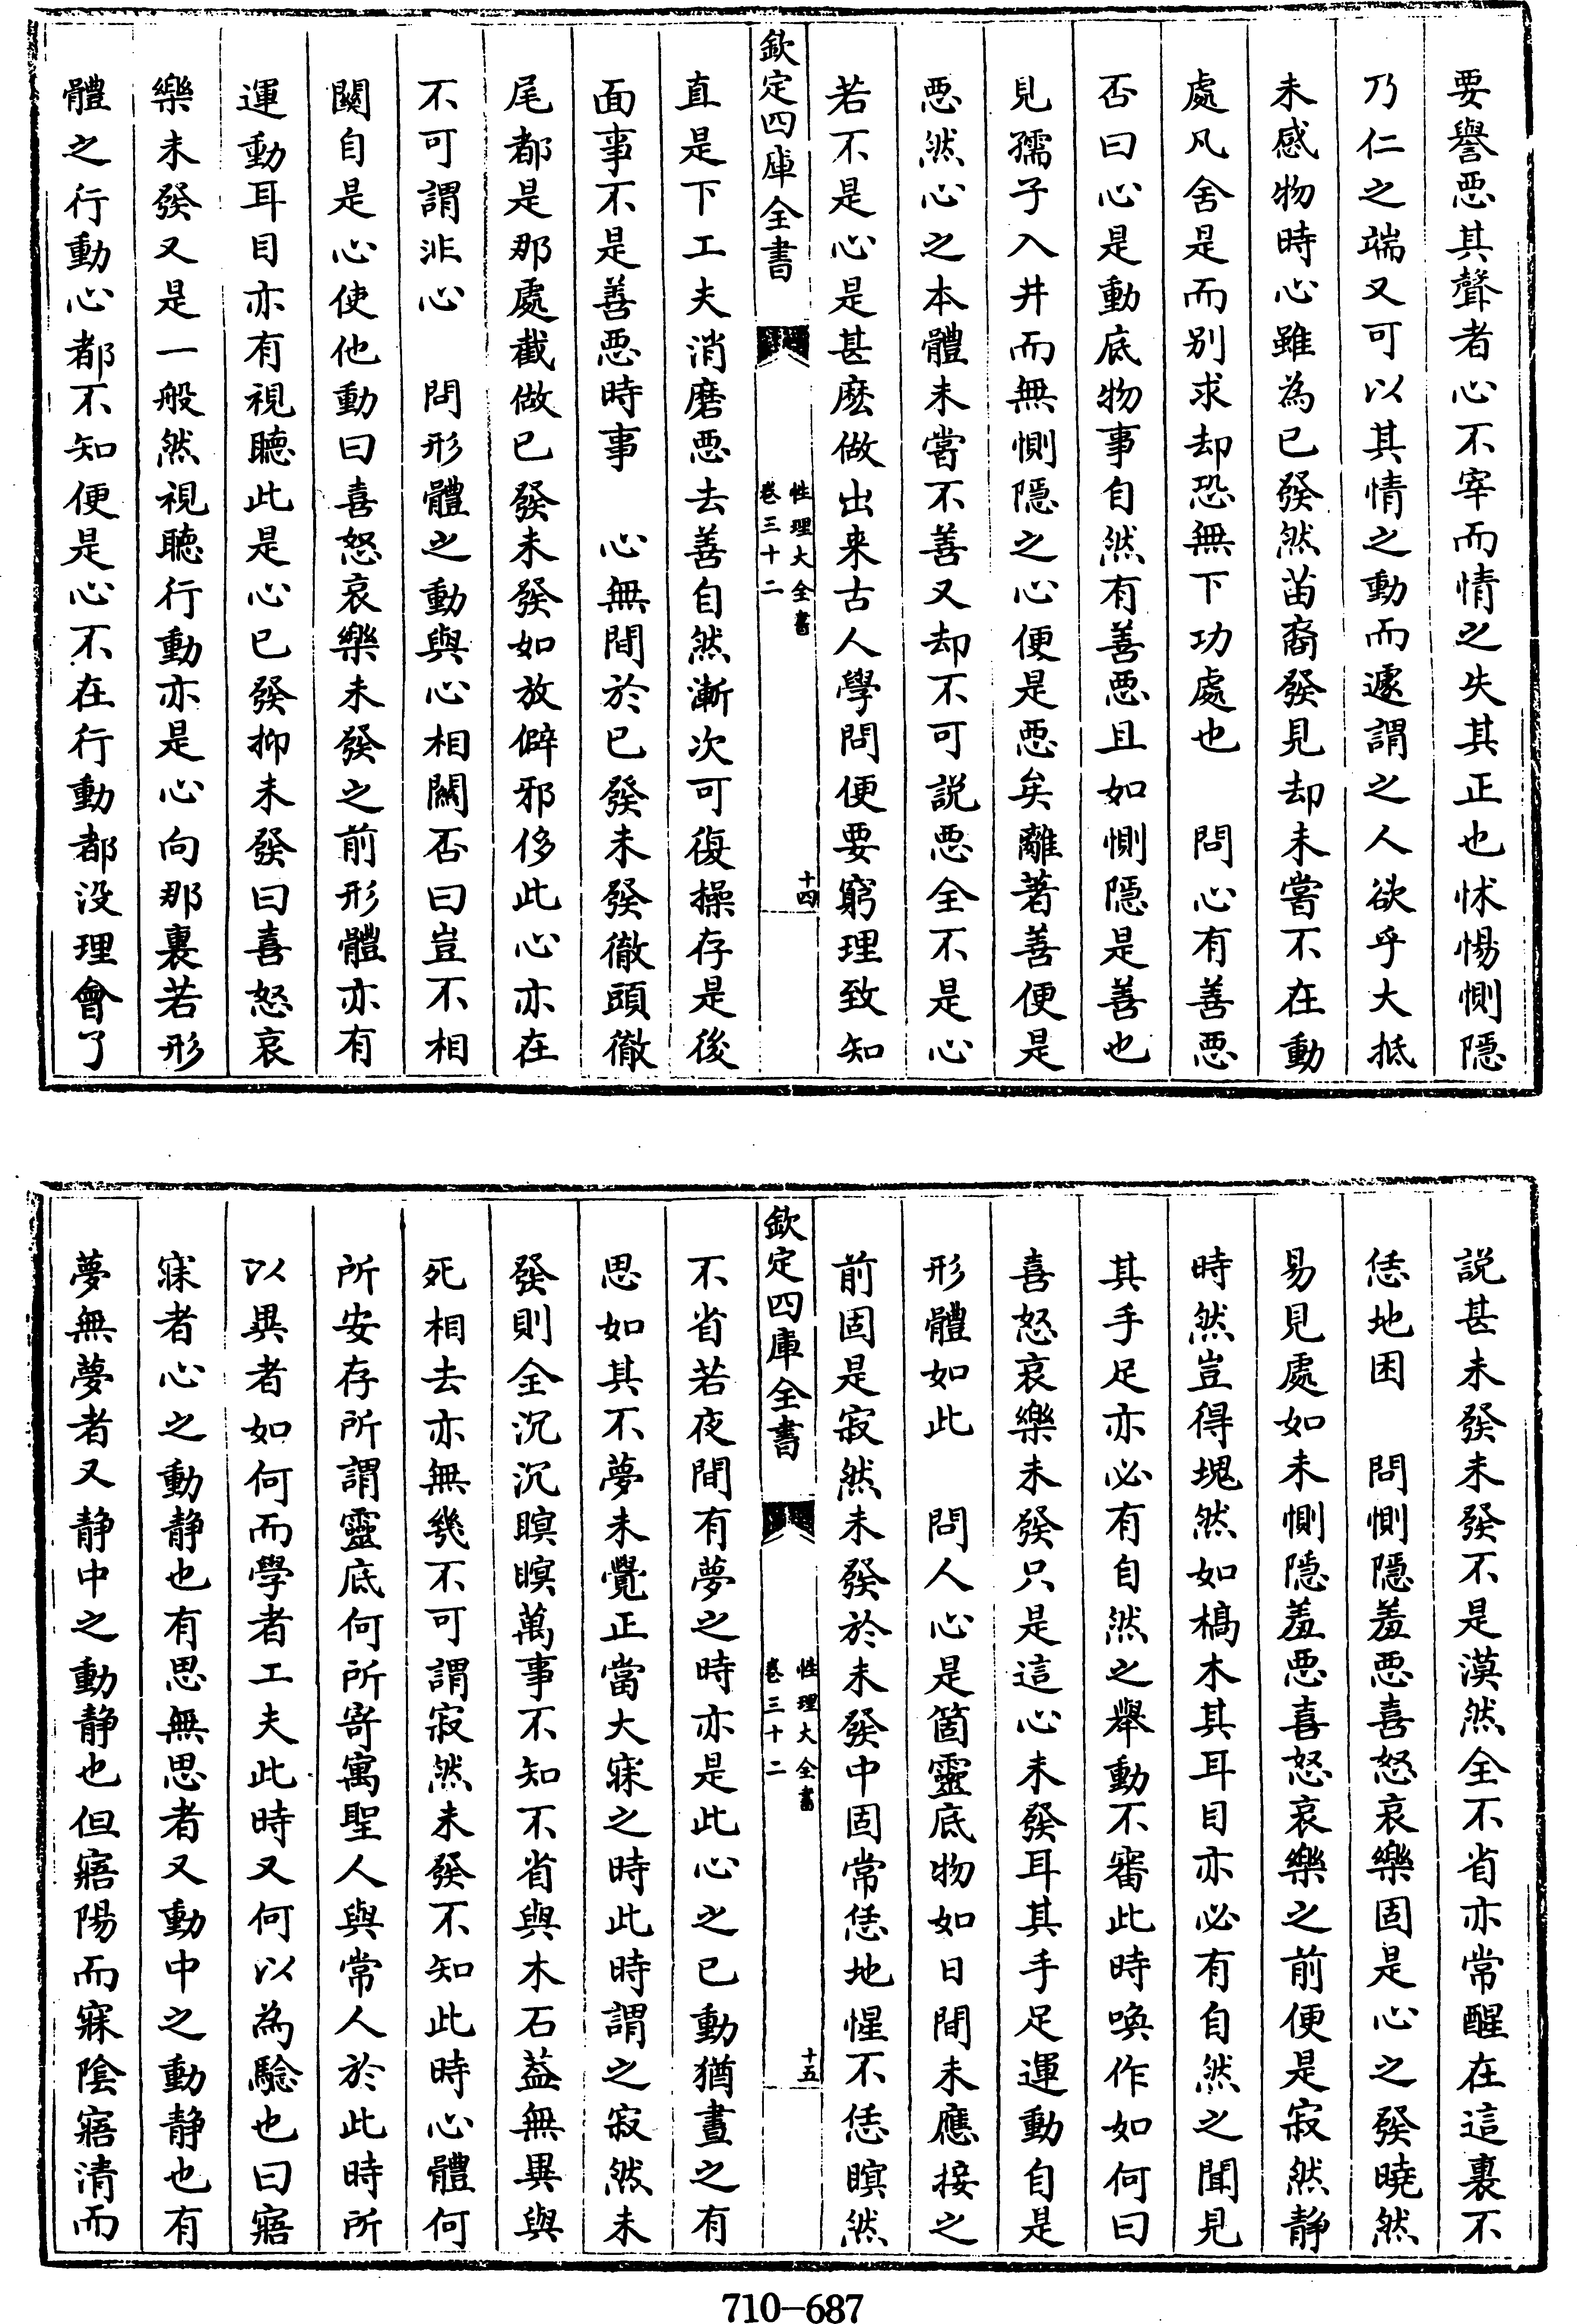 要譽惡其聲者心不宰而情之失其正也怵惕惻隠
乃仁之端又可以其情之動而遽謂之人欲乎大抵
未感物時心雖為已發然苖裔發見却未嘗不在動
處凡舍是而别求却恐無下功處也　問心有善惡
否曰心是動底物事自然有善惡且如惻隠是善也
見孺子入井而無惻隠之心便是惡矣離著善便是
惡然心之本體未嘗不善又却不可説惡全不是心
若不是心是甚麽做出来古人學問便要窮理致知
欽定四庫全書
性理大全書
卷三十二
十四
直是下工夫消磨惡去善自然漸次可復操存是後
面事不是善惡時事　心無間於已發未發徹頭徹
尾都是那處截做已發未發如放僻邪侈此心亦在
不可謂非心　問形體之動與心相關否曰豈不相
關自是心使他動曰喜怒哀樂未發之前形體亦有
運動耳目亦有視聽此是心已發抑未發曰喜怒哀
樂未發又是一般然視聽行動亦是心向那裏若形
體之行動心都不知便是心不在行動都没理會了
説甚未發未發不是漠然全不省亦常醒在這裏不
恁地困　問惻隠羞惡喜怒哀樂固是心之發曉然
易見處如未惻隠羞惡喜怒哀樂之前便是寂然靜
時然豈得塊然如槁木其耳目亦必有自然之聞見
其手足亦必有自然之舉動不審此時喚作如何曰
喜怒哀樂未發只是這心未發耳其手足運動自是
形體如此　問人心是箇靈底物如日間未應接之
前固是寂然未發於未發中固常恁地惺不恁瞑然
欽定四庫全書
性理大全書
卷三十二
十五
不省若夜間有夢之時亦是此心之已動猶晝之有
思如其不夢未覺正當大寐之時此時謂之寂然未
發則全沉沉瞑瞑萬事不知不省與木石葢無異與
死相去亦無幾不可謂寂然未發不知此時心體何
所安存所謂靈底何所寄寓聖人與常人於此時所
以異者如何而學者工夫此時又何以為驗也曰寤
寐者心之動靜也有思無思者又動中之動靜也有
夢無夢者又静中之動静也但寤陽而寐陰寤清而
710-687